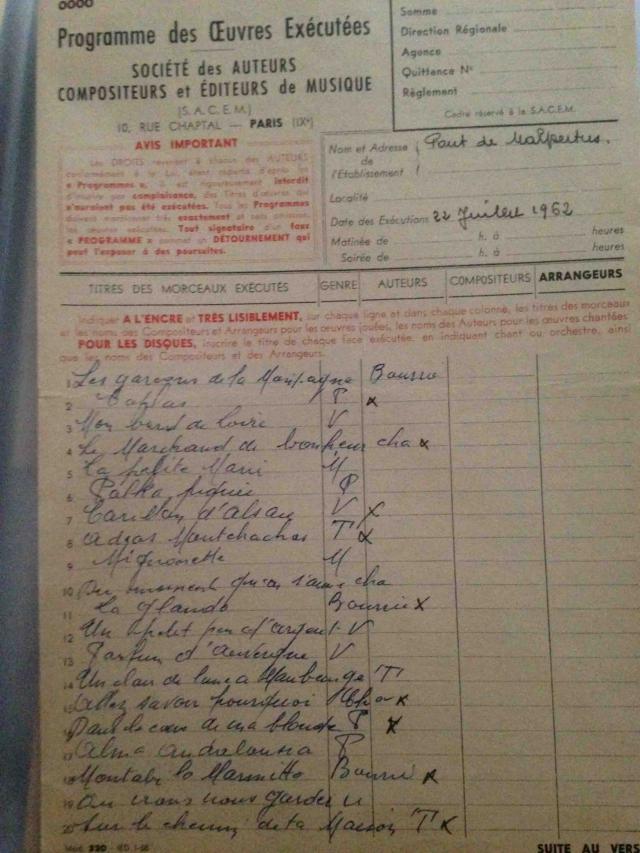 0000
Programme des Œuvres Exécutées
SOCIÉTÉ des AUTEURS
COMPOSITEURS et ÉDITEURS de MUSIQUE
(S.A.C.E.M.)
10, RUE CHAPTAL — PARIS (IXe)
Somme
Direction Régionale
Agence
Quittance N°
Règlement
Cadre réservé à la S.A.C.E.M.
AVIS IMPORTANT
Les DROITS revenant à chacun des AUTEURS
conformément à la Loi, étant répartis d'après les
« Programmes », il est rigoureusement interdit
d'inscrire par complaisance, des Titres d'œuvres qui
n'auraient pas été exécutées. Tous les Programmes
doivent mentionner très exactement et sans omission,
les œuvres exécutées. Tout signataire d'un faux
« PROGRAMME » commet un DÉTOURNEMENT qui
peut l'exposer à des poursuites.
Nom et Adresse de l'Établissement Pont de
Localité
Date des Exécutions 22 Juillet 1962
Matinée de h. à heures
Soirée de h. à heures
TITRES DES MORCEAUX EXÉCUTÉS GENRE AUTEURS COMPOSITEURS ARRANGEURS
Indiquer A L'ENCRE et TRÈS LISIBLEMENT, sur chaque ligne et dans chaque colonne, les titres des morceaux
et les noms des Compositeurs et Arrangeurs pour les œuvres jouées, les noms des Auteurs pour les œuvres chantées
POUR LES DISQUES, inscrire le titre de chaque face exécutée, en indiquant chant ou orchestre, ainsi
que les noms des Compositeurs et des Arrangeurs.
1 Les garçons de la Montagne Bourrée
2 P x
3 Mon bord de loire V
4 Le Marchand de bonheur cha x
5 La petite Marie M
6 Polka piquée P
7 Carillon d'Alsace V x
8 Adios T x
9 Mignonette M
10 Du moment qu'on s'aime cha
11 La Glaudo Bourrée x
12 Un petit peu d'argent V
13 Parfum d'auvergne V
14 Un clair de lune a Maubeuge T
15 Allez savoir pourquoi x
16 Dans le cœur de ma blonde P x
17 Alma P
18 la Marmitto Bourrée x
19 nous garder
20 Sur le chemin de la Maison T x
Mod. 220
SUITE AU VERS